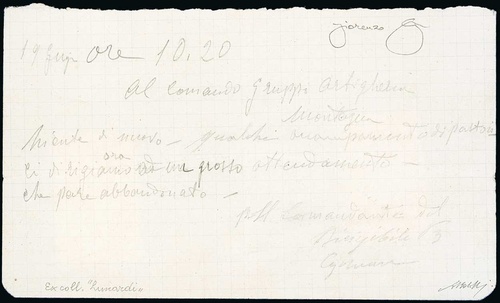 Fiorenzo
19 ore 10.20
Al Comando Gruppi Artiglieria
Montagna
Niente di nuovo - qualche accampamento di pastori
ora
Ci dirigiamo ad un grosso attendamento -
che pare abbandonato -
Comandante del
Dirigibile
Ex coll. "Lunardi"